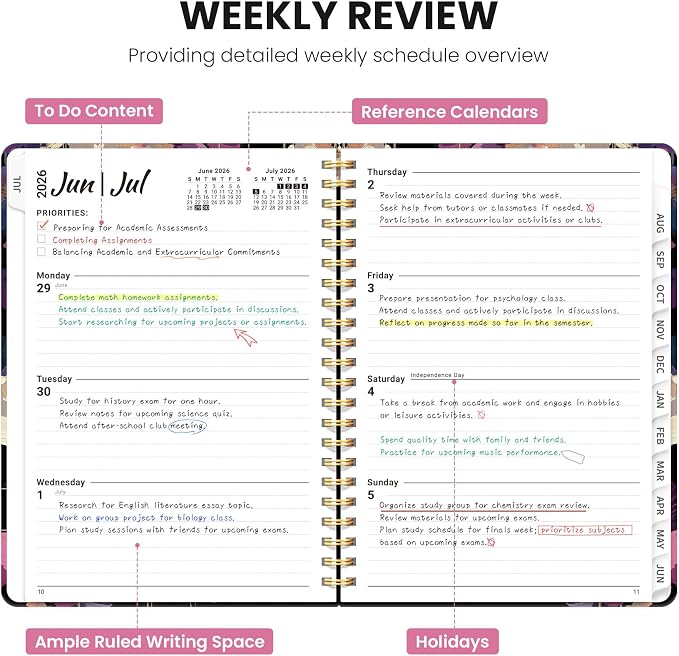 WEEKLY REVIEW
Providing detailed weekly schedule overview
To Do Content
Reference Calendars
JUL
2026
Jun | Jul
June 2026
S M T W T F S
1 2 3 4 5 6
7 8 9 10 11 12 13
14 15 16 17 18 19 20
21 22 23 24 25 26 27
28 29 30
July 2026
S M T W T F S
1 2 3 4
5 6 7 8 9 10 11
12 13 14 15 16 17 18
19 20 21 22 23 24 25
26 27 28 29 30 31
PRIORITIES:
Preparing for Academic Assessments
Completing Assignments
Balancing Academic and Extracurricular Commitments
Monday
29 June
Complete math homework assignments.
Attend classes and actively participate in discussions.
Start researching for upcoming projects or assignments.
Tuesday
30
Study for history exam for one hour.
Review notes for upcoming science quiz.
Attend after-school club meeting.
Wednesday
1 July
Research for English literature essay topic.
Work on group project for biology class.
Plan study sessions with friends for upcoming exams.
10
Thursday
2
Review materials covered during the week.
Seek help from tutors or classmates if needed.
Participate in extracurricular activities or clubs.
Friday
3
Prepare presentation for psychology class.
Attend classes and actively participate in discussions.
Reflect on progress made so far in the semester.
Saturday Independence Day
4
Take a break from academic work and engage in hobbies
or leisure activities.
Spend quality time with family and friends.
Practice for upcoming music performance.
Sunday
5
Organize study group for chemistry exam review.
Review materials for upcoming exams.
Plan study schedule for finals week; prioritize subjects
based on upcoming exams.
11
AUG
SEP
OCT
NOV
DEC
JAN
FEB
MAR
APR
MAY
JUN
Ample Ruled Writing Space
Holidays